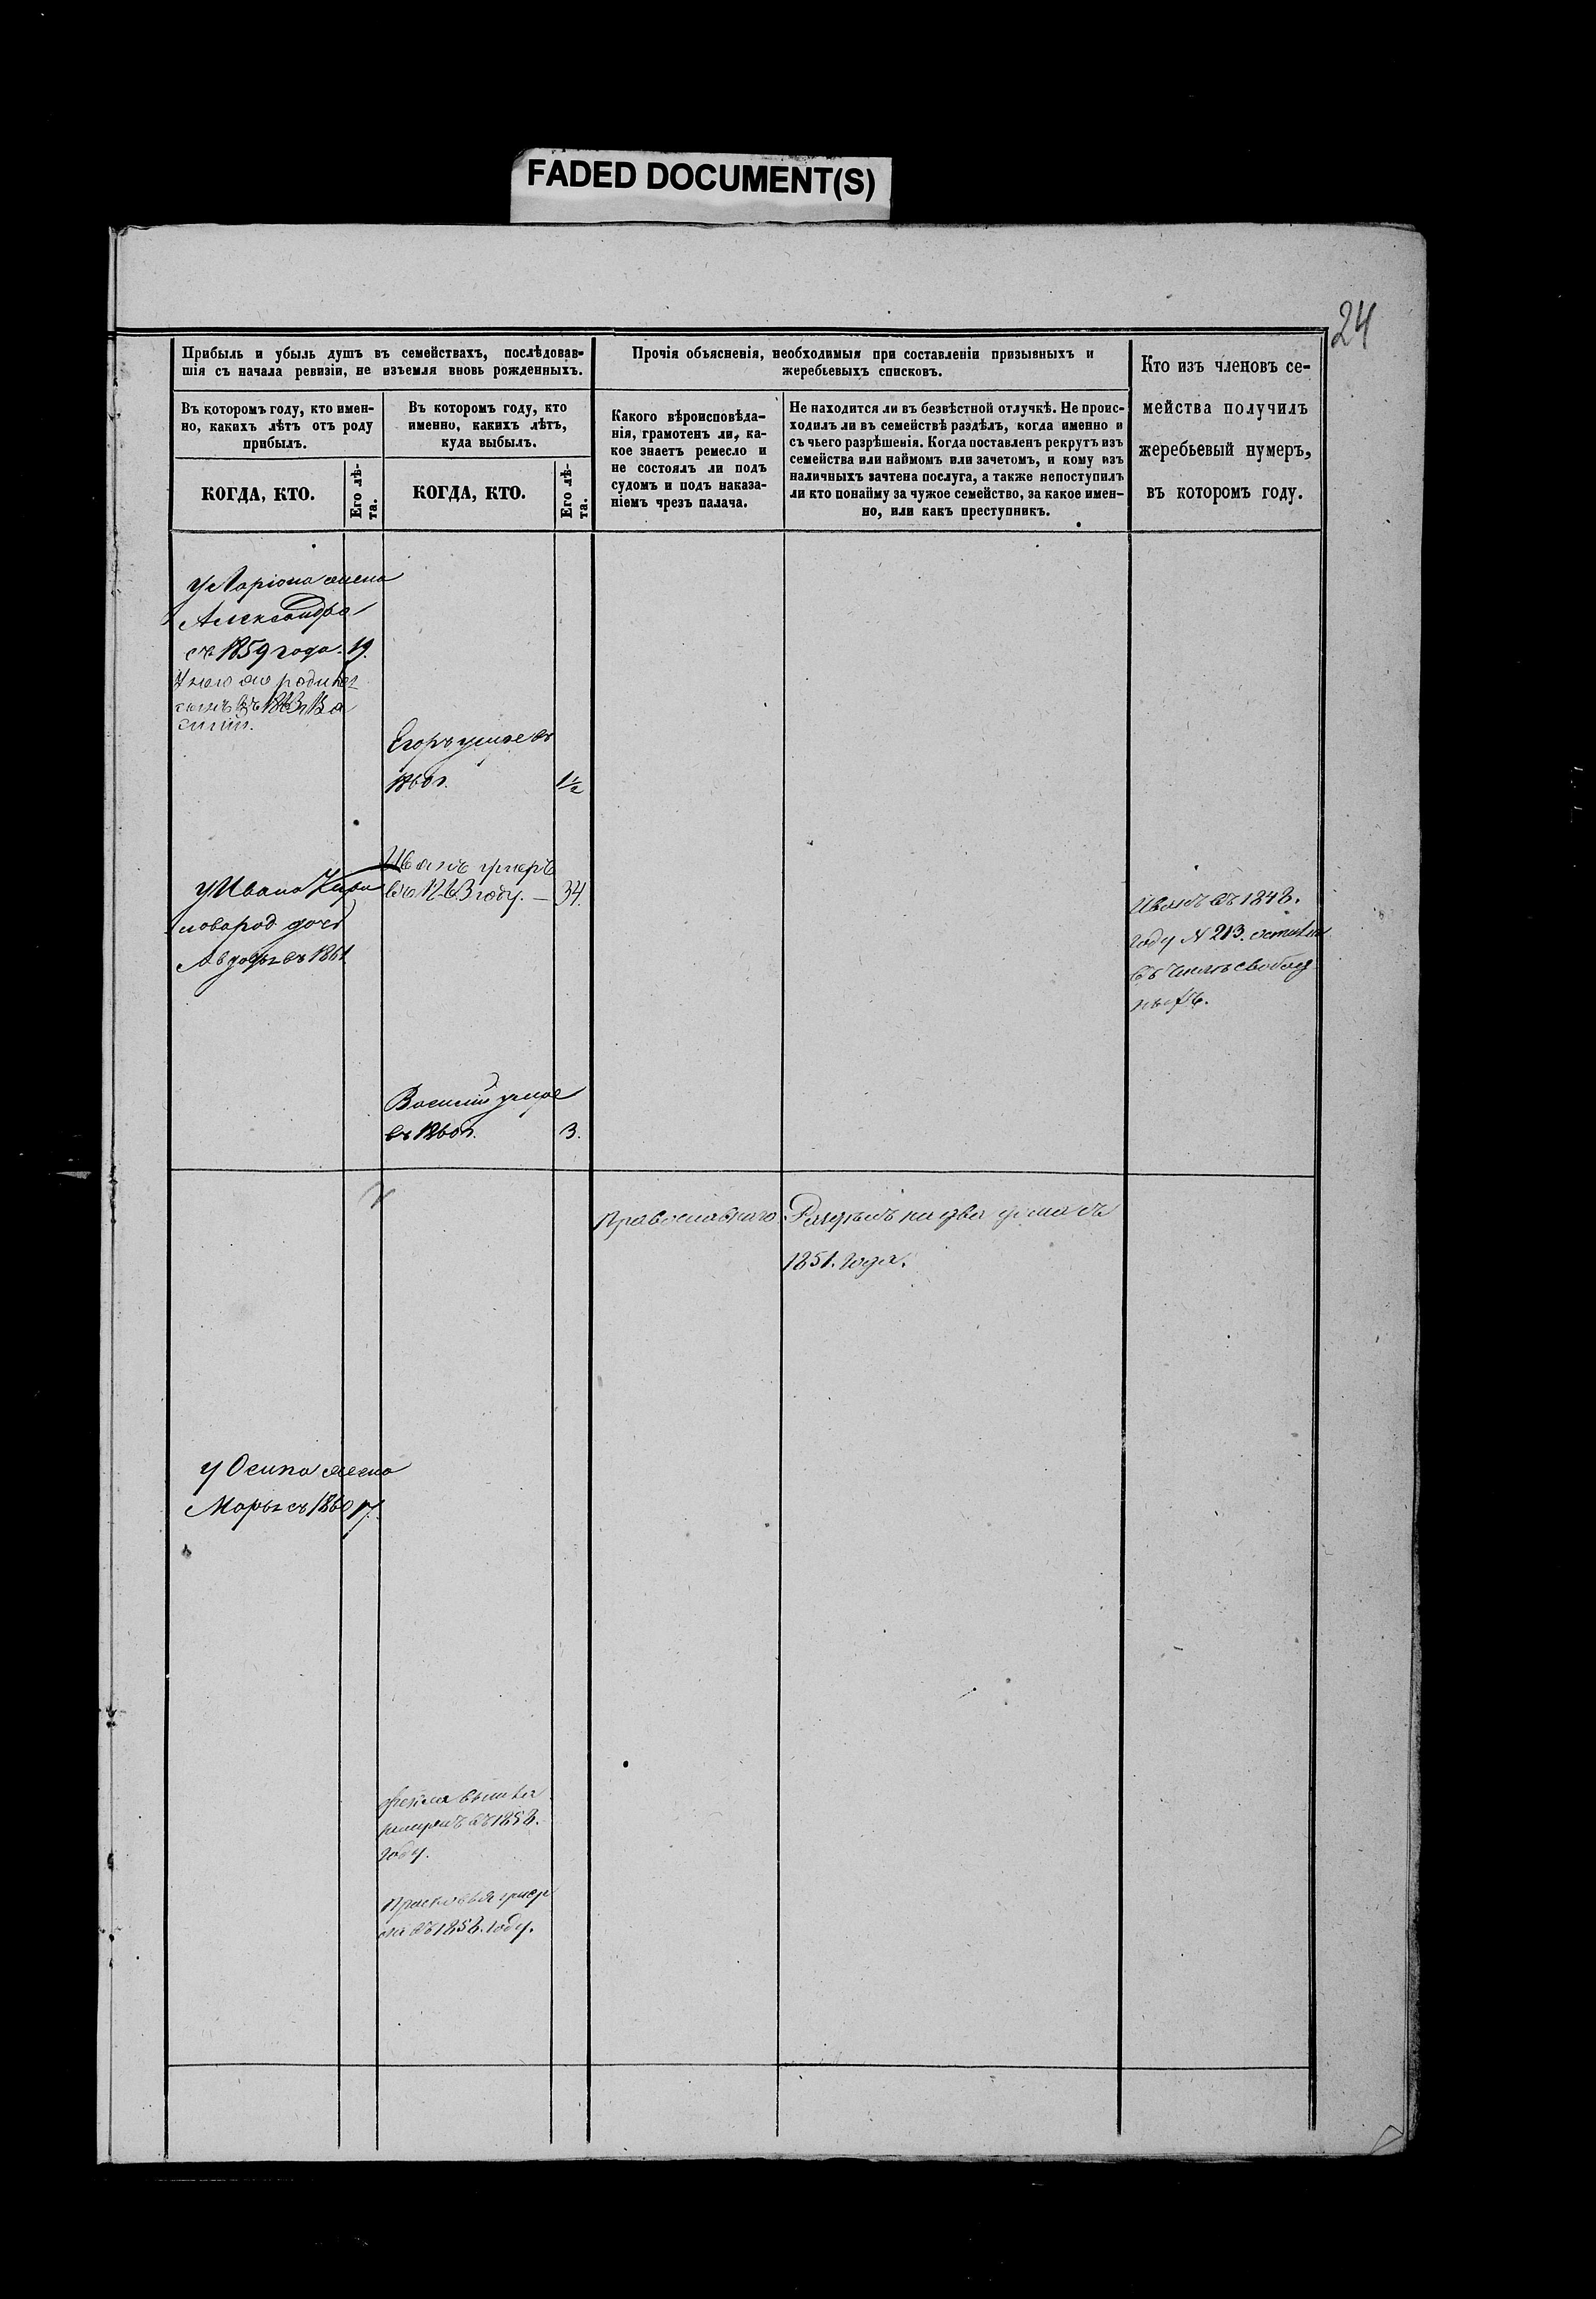 FADED DOCUMENT(S)
24
Прибыль и убыль душъ въ семействахъ, послѣдовав-
шія съ начала ревизіи, не изъемля вновь рожденныхъ.
Въ которомъ году, кто имен-
но, какихъ лѣтъ отъ роду
прибылъ.
КОГДА, КТО.
Его лѣ-
та.
Въ которомъ году, кто
именно, какихъ лѣтъ,
куда выбылъ.
КОГДА, КТО.
Его лѣ-
та.
Прочія объясненія, необходимыя при составленіи призывныхъ и
жеребьевыхъ списковъ.
Какого вѣроисповѣда-
нія, грамотенъ ли, ка-
кое знаетъ ремесло и
не состоялъ ли подъ
судомъ и подъ наказа-
ніемъ чрезъ палача.
Не находится ли въ безвѣстной отлучкѣ. Не проис-
ходилъ ли въ семействѣ раздѣлъ, когда именно и
съ чьего разрѣшенія. Когда поставленъ рекрутъ изъ
семейства или наймомъ или зачетомъ, и кому изъ
наличныхъ зачтена послуга, а также непоступилъ
ли кто понайму за чужое семейство, за какое имен-
но, или какъ преступникъ.
Кто изъ членовъ се-
мейства получилъ
жеребьевый нумеръ,
въ которомъ году.
У Ларіона жена
Александра
съ 1859 года. 19.
родился
сынъ въ 1863 г Ва
силій.
Егоръ умре въ
1860 г. 1½
Иванъ умеръ
въ 1863 году. — 34.
У Ивана
род дочь
Авдотья въ 1861
Иванъ въ 1848.
году N 213. остался
въ числѣ свобод
ныхъ.
Василій умре
въ 1860 г. 3.
Православнаго
Раздѣлъ на два дома съ
1851. года.
У Осипа жена
Марья съ 1860 17.
Фекла вышла
замужъ въ 1858.
году.
Прасковья умер
ла въ 1858. году.